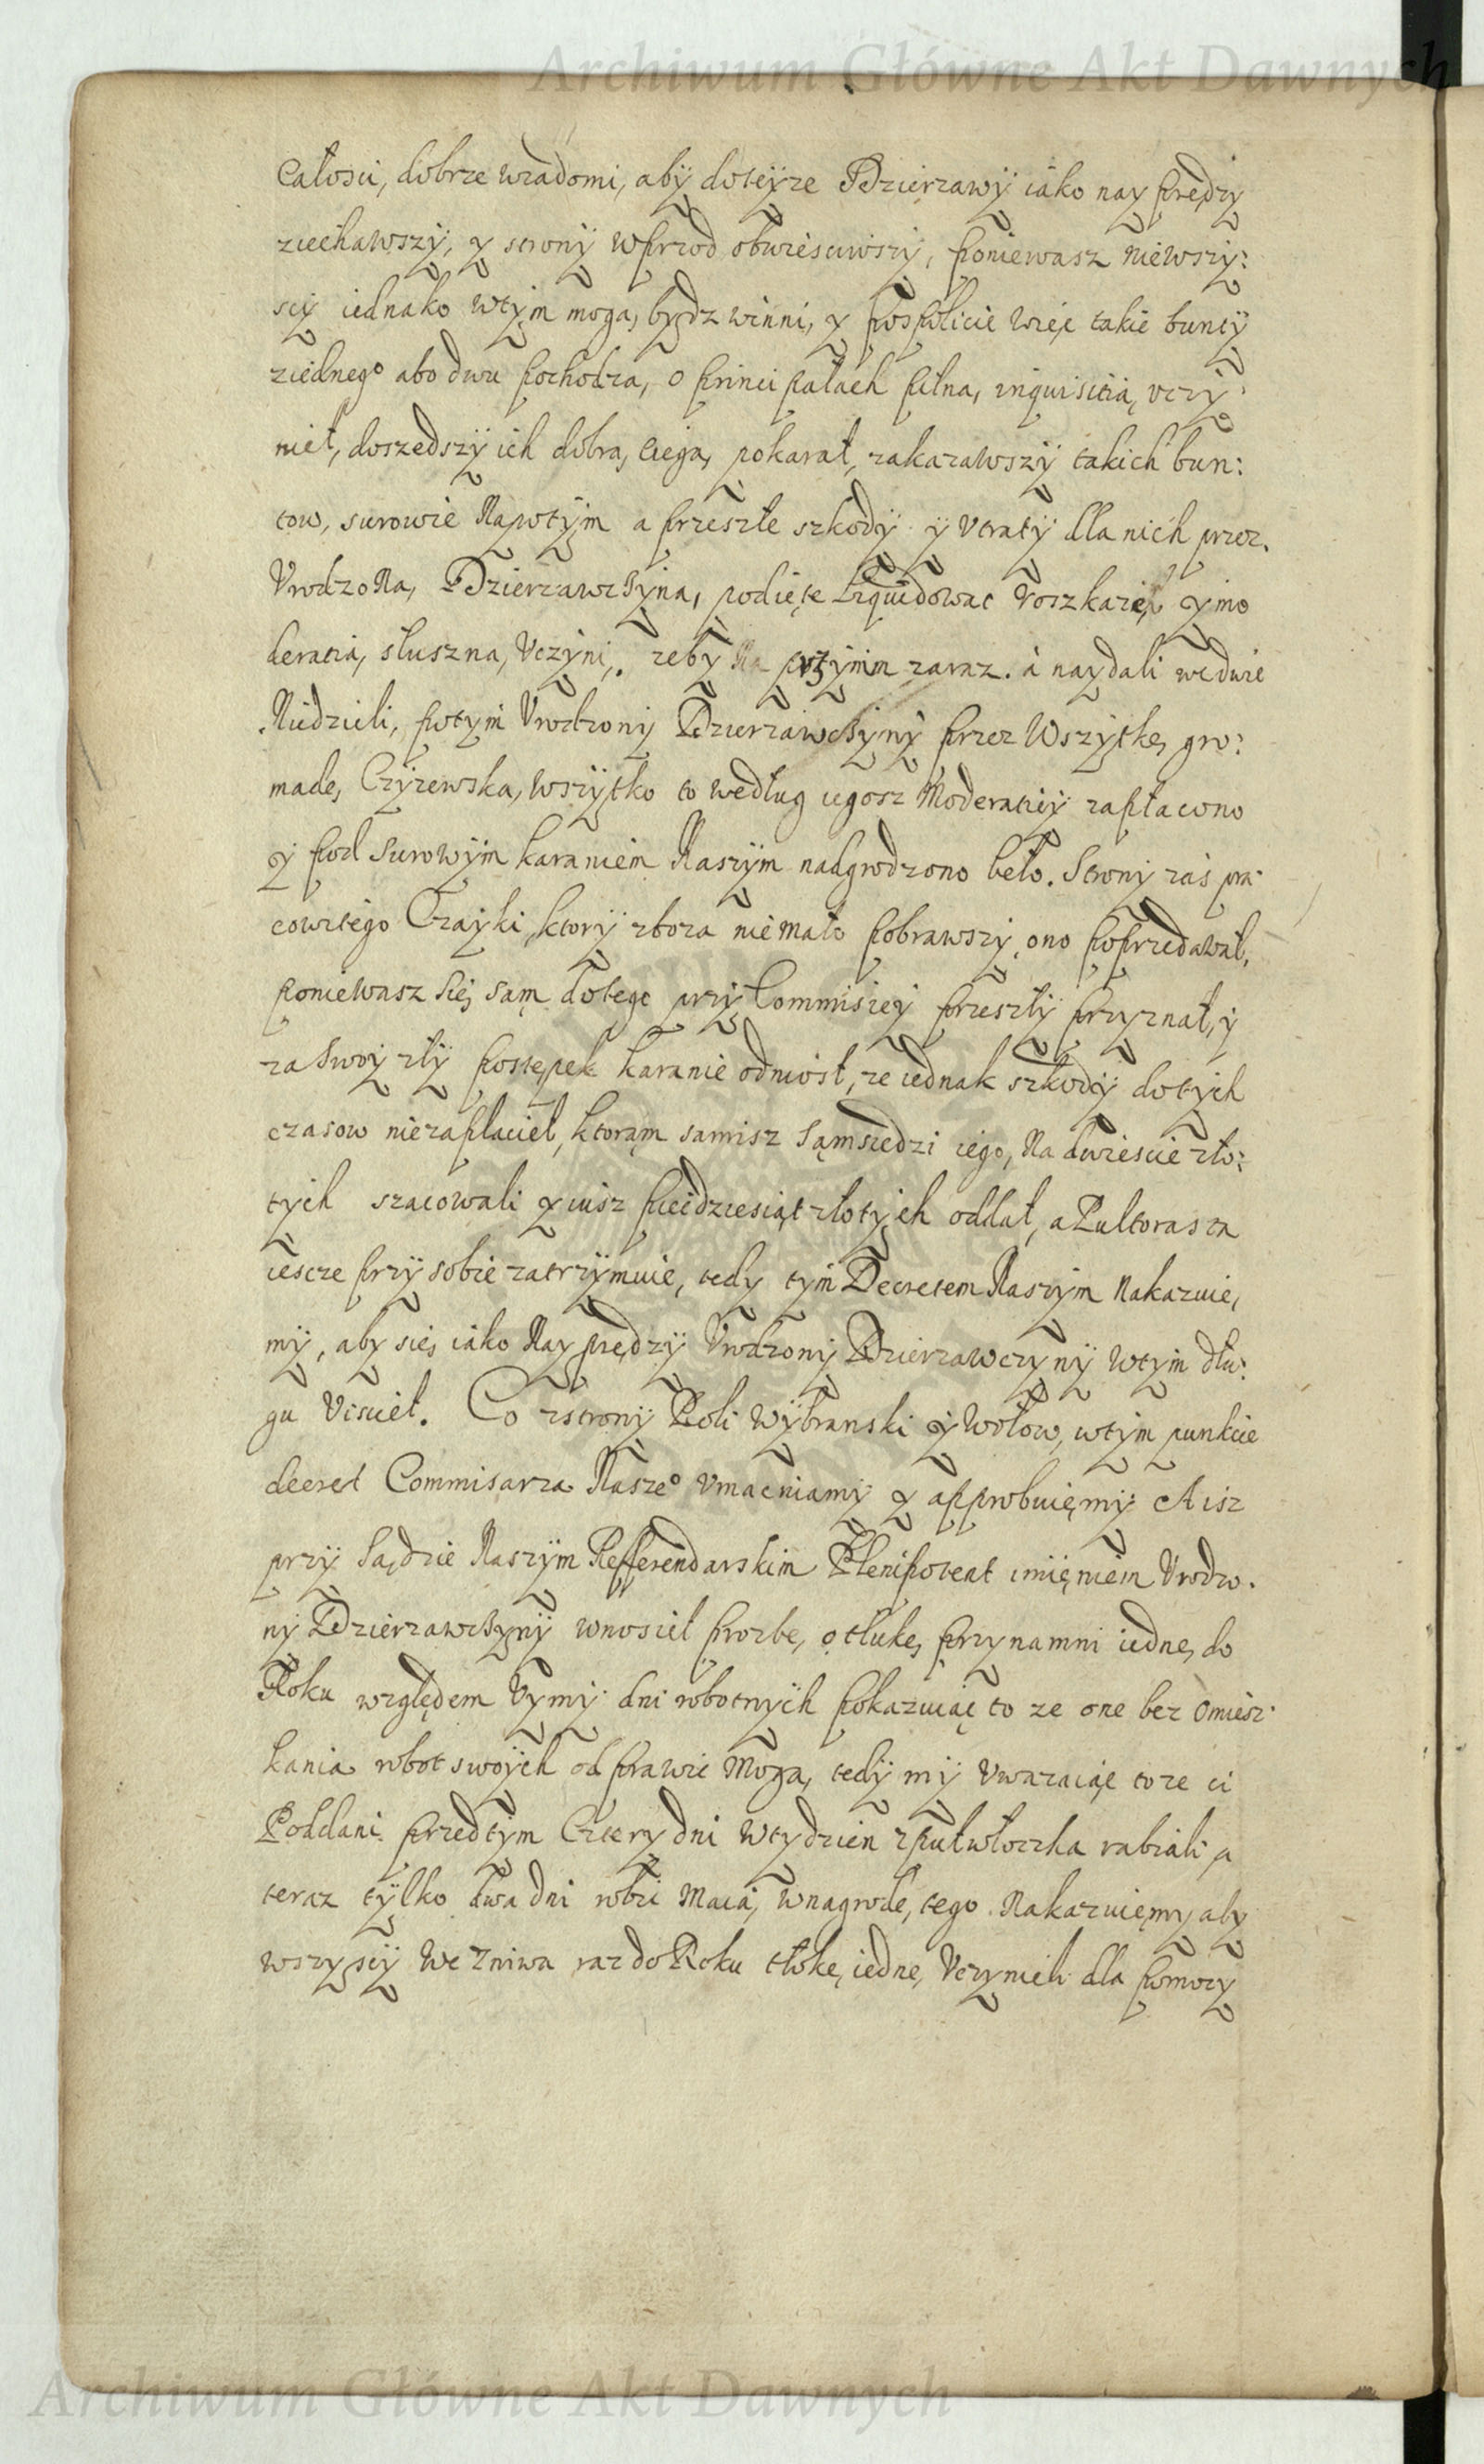 Archiwum Główne Akt Dawnych
całosci, dobrze wiadomi, aby doteyze Dzierzawy iako nay prędzy
ziechawszy, y strony wprzod obwiesciwszy, poniewasz niewszy:
scy iednako wtym mogą bydz winni, y pospolicie więc takie bunty
ziednego abo dwu pochodzą, o principałach pilną inquisitią vczy:
nieł, doszedszy ich dobrą cięgą pokarał, zakazawszy takich bun:
tow, surowie napotym a przeszłe szkody y vtraty dla nich przez
Vrodzoną Dzierzawczyną podięte liquidowac roszkaże y mo
deratią słuszną vczyni, zeby zaraz. a naydali wedwie
Niedzieli, potym Vrodzony Dzierzawczyny przez wszytkę gro:
madę Czyzewską wszytko to według iegosz moderatiey zapłacono
y pod surowym karaniem naszym nadgrodzono beło. Strony zas pra:
cowitego Czayki, ktory zboza niemało pobrawszy, ono poprzedawał,
poniewasz się sąm dotego przy Commisiey przeszły przyznał, y
za swoy zły postępek karanie odniosł, ze iednak szkody dotych
czasow niezapłacieł, ktorąm samisz sąmsiedzi iego, na dwiescie zło:
tych szacowali y iusz pięcdziesiąt złotych oddał, a Pultorasta
iescze przy sobie zatrzymuie, tedy tym Decretem naszym nakazuie,
my, aby się iako nay prędzy Vrodzony Dzierzawczyny wtym dłu:
gu viscieł. Co zstrony Roli wybranski y wołow, wtym punkcie
decret Commisarza naszeo vmacniamy y approbuięmy. A isz
przy sądzie naszym Refferendarskim Plenipotent imięniem Vrodzo.
ny Dzierzawczyny wnosieł prozbę, o tłukę przynamni iednę do
Roku względem vymy dni robotnych pokazuiąc to ze one bez omiesz:
kania robot swoych odprawic mogą, tedy my vwazaiąc to ze ci
Poddani przedtym cztery dni wtydzien zpułwłoczka rabiali a
teraz tylko dwa dni robic maią, wnagrodę tego nakazuięmy aby
wszyscy we zniwa raz do Roku tłokę iednę vczynieli dla pomocy
Archiwum Główne Akt Dawnych